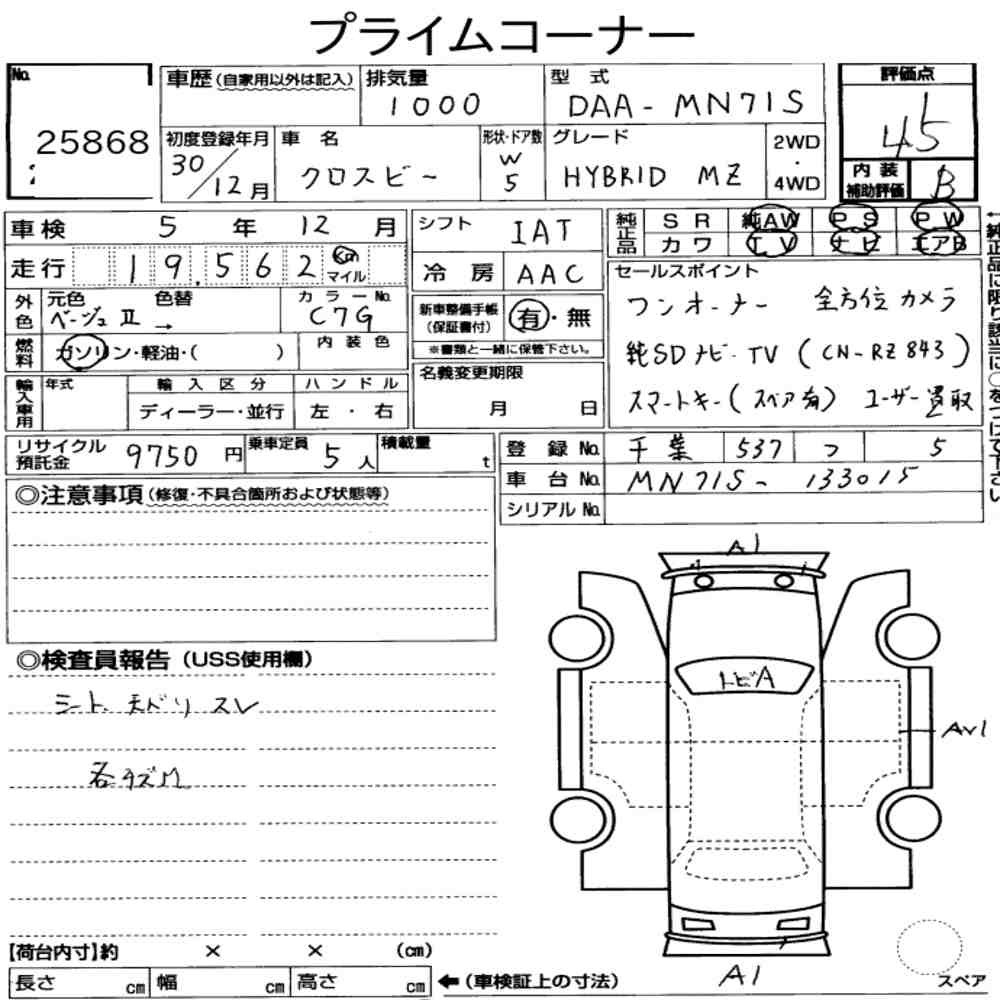 プライムコーナー
No. 25868
車歴(自家用以外は記入)
排気量 1000
型式 DAA-MN71S
評価点 4.5
初度登録年月 30/12月
車名 クロスビー
形状・ドア数 W 5
グレード HYBRID MZ
2WD・4WD
内装補助評価 B
車検 5年12月
シフト IAT
純正品 SR 純AW PS PW
カワ TV ナビ エアB
走行 19,562 km マイル
冷房 AAC
セールスポイント
ワンオーナー 全方位カメラ
純SDナビ・TV (CN-RZ843)
スマートキー(スペア有) ユーザー買取
外色 元色 ベージュII 色替 →
カラーNo. C7G
新車整備手帳(保証書付) 有・無
※書類と一緒に保管下さい。
燃料 ガソリン・軽油・( )
内装色
名義変更期限 月 日
輸入車用 年式 輸入区分 ハンドル
ディーラー・並行 左・右
リサイクル預託金 9750円
乗車定員 5人
積載量 t
登録No. 千葉 537 つ 5
車台No. MN71S-133015
シリアルNo.
◎注意事項(修復・不具合箇所および状態等)
◎検査員報告(USS使用欄)
シート
スレ
A1
トビA
AV1
A1
スペア
【荷台内寸】約 × × (cm)
長さ cm 幅 cm 高さ cm
←(車検証上の寸法)
↓純正品に限り該当に○をつけて下さい